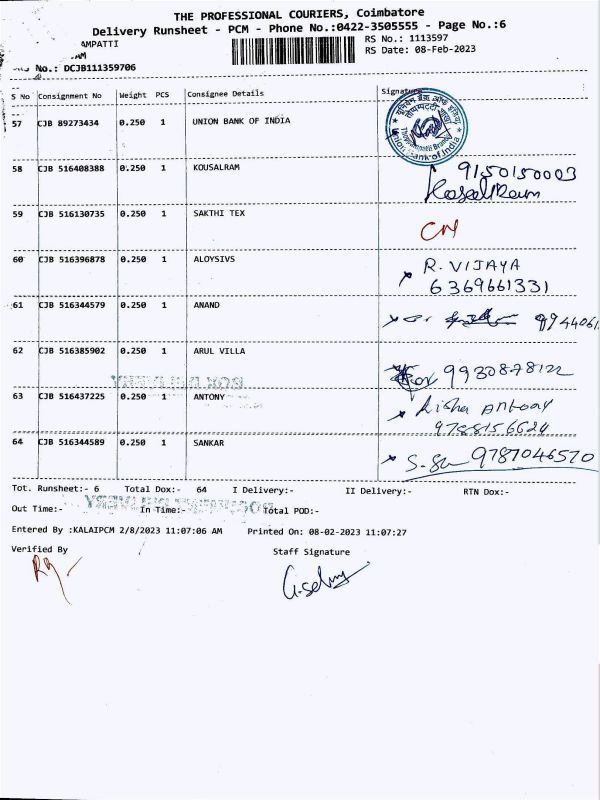 THE PROFESSIONAL COURIERS, Coimbatore
Delivery Runsheet - PCM - Phone No.:0422-3505555 - Page No.:6
AMPATTI
RS No.: 1113597
RS Date: 08-Feb-2023
No.: DCJB111359706
S No Consignment No Weight PCS Consignee Details Signature
57 CJB 89273434 0.250 1 UNION BANK OF INDIA
58 CJB 516408388 0.250 1 KOUSALRAM 9150150003
59 CJB 516130735 0.250 1 SAKTHI TEX
60 CJB 516396878 0.250 1 ALOYSIVS R. VIJAYA
6369661331
61 CJB 516344579 0.250 1 ANAND 994406
62 CJB 516385902 0.250 1 ARUL VILLA
BOX DELIVERY
63 CJB 516437225 0.250 1 ANTONY Antony
64 CJB 516344589 0.250 1 SANKAR 9787046570
Tot. Runsheet:- 6 Total Dox:- 64 I Delivery:- II Delivery:- RTN Dox:-
Out Time:- In Time:- Total POD:-
Entered By :KALAIPCM 2/8/2023 11:07:06 AM Printed On: 08-02-2023 11:07:27
Verified By Staff Signature